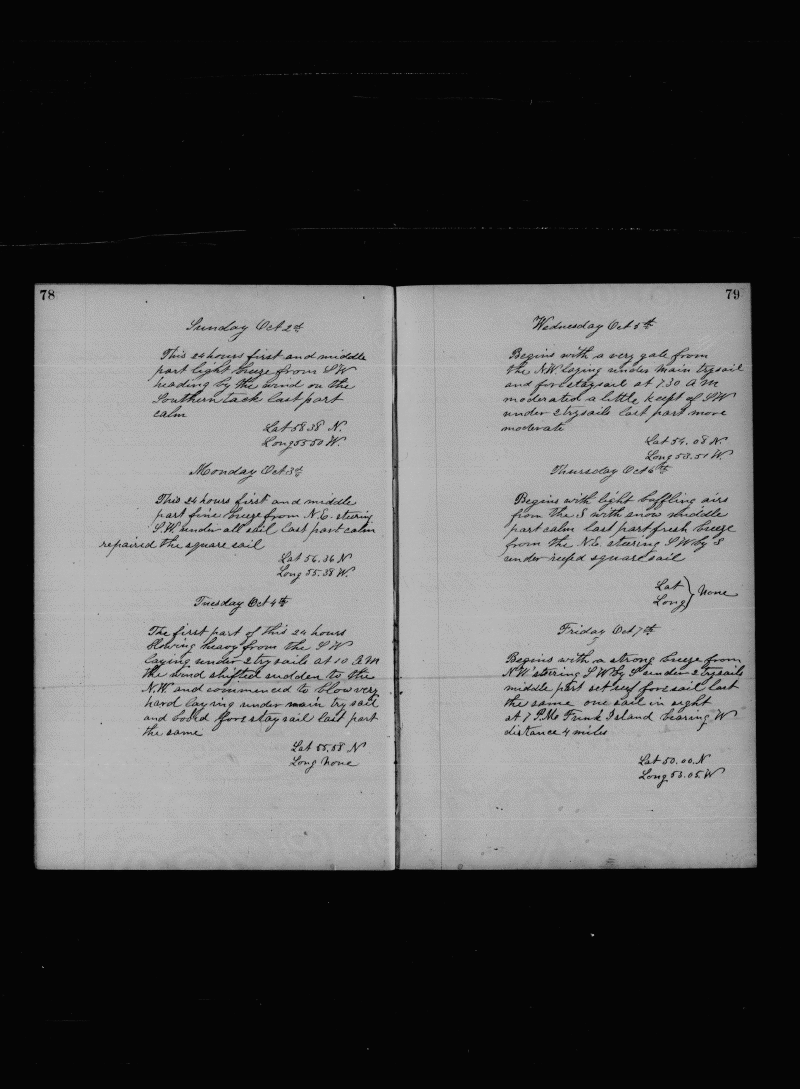 78
Sunday Oct 2nd
This 24 hours first and middle
part light breeze from S W
heading by the wind on the
Southern tack last part
calm
Lat 58 38 N.
Long 55 50 W.
Monday Oct 3rd
This 24 hours first and middle
part fine breeze from N.E. steering
S.W. under all sail last part calm
repaired the square sail
Lat 56.36 N
Long 55.38 W.
Tuesday Oct 4th
The first part of this 24 hours
Blowing heavy from the S W
laying under 2 try sails at 10 A M
the wind shifted sudden to the
N.W. and commenced to blow very
hard laying under main try sail
and fore stay sail last part
the same
Lat 55.58 N
Long None
79
Wednesday Oct 5th
Begins with a very gale from
the N.W. laying under main trysail
and forestaysail at 7.30 A M
moderated a little kept of S W
under 2 trysails last part more
moderate
Lat 54.08 N.
Long 53.51 W.
Thursday Oct 6th
Begins with light baffling airs
from the S with snow middle
part calm last part fresh breeze
from the N.E. steering S W by S
under reefed square sail
Lat
Long } None
Friday Oct 7th
Begins with a strong breeze from
N W steering S W by S under 2 trysails
middle part set reef foresail last
the same one sail in sight
at 7 P.M. Funk Island bearing W
distance 4 miles
Lat 50.00. N
Long 53.05 W